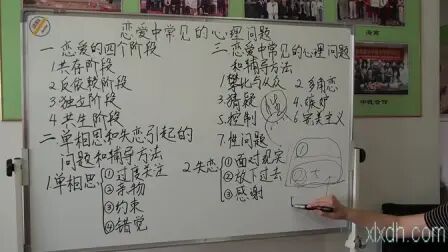 恋爱中常见的心理问题
一 恋爱的四个阶段
1.共存阶段
2.反依赖阶段
3.独立阶段
4.共生阶段
二 单相思和失恋引起的
问题和辅导方法
1.单相思
①过度关注
②亲物
③约束
④错觉
2.失恋
①面对现实
②放下过去
③感谢
三 恋爱中常见的心理问题
和辅导方法
1.攀比与从众 2.多角恋
3.猜疑 4.嫉妒
5.控制 6.完美主义
7.性问题
①
xlxdh.com